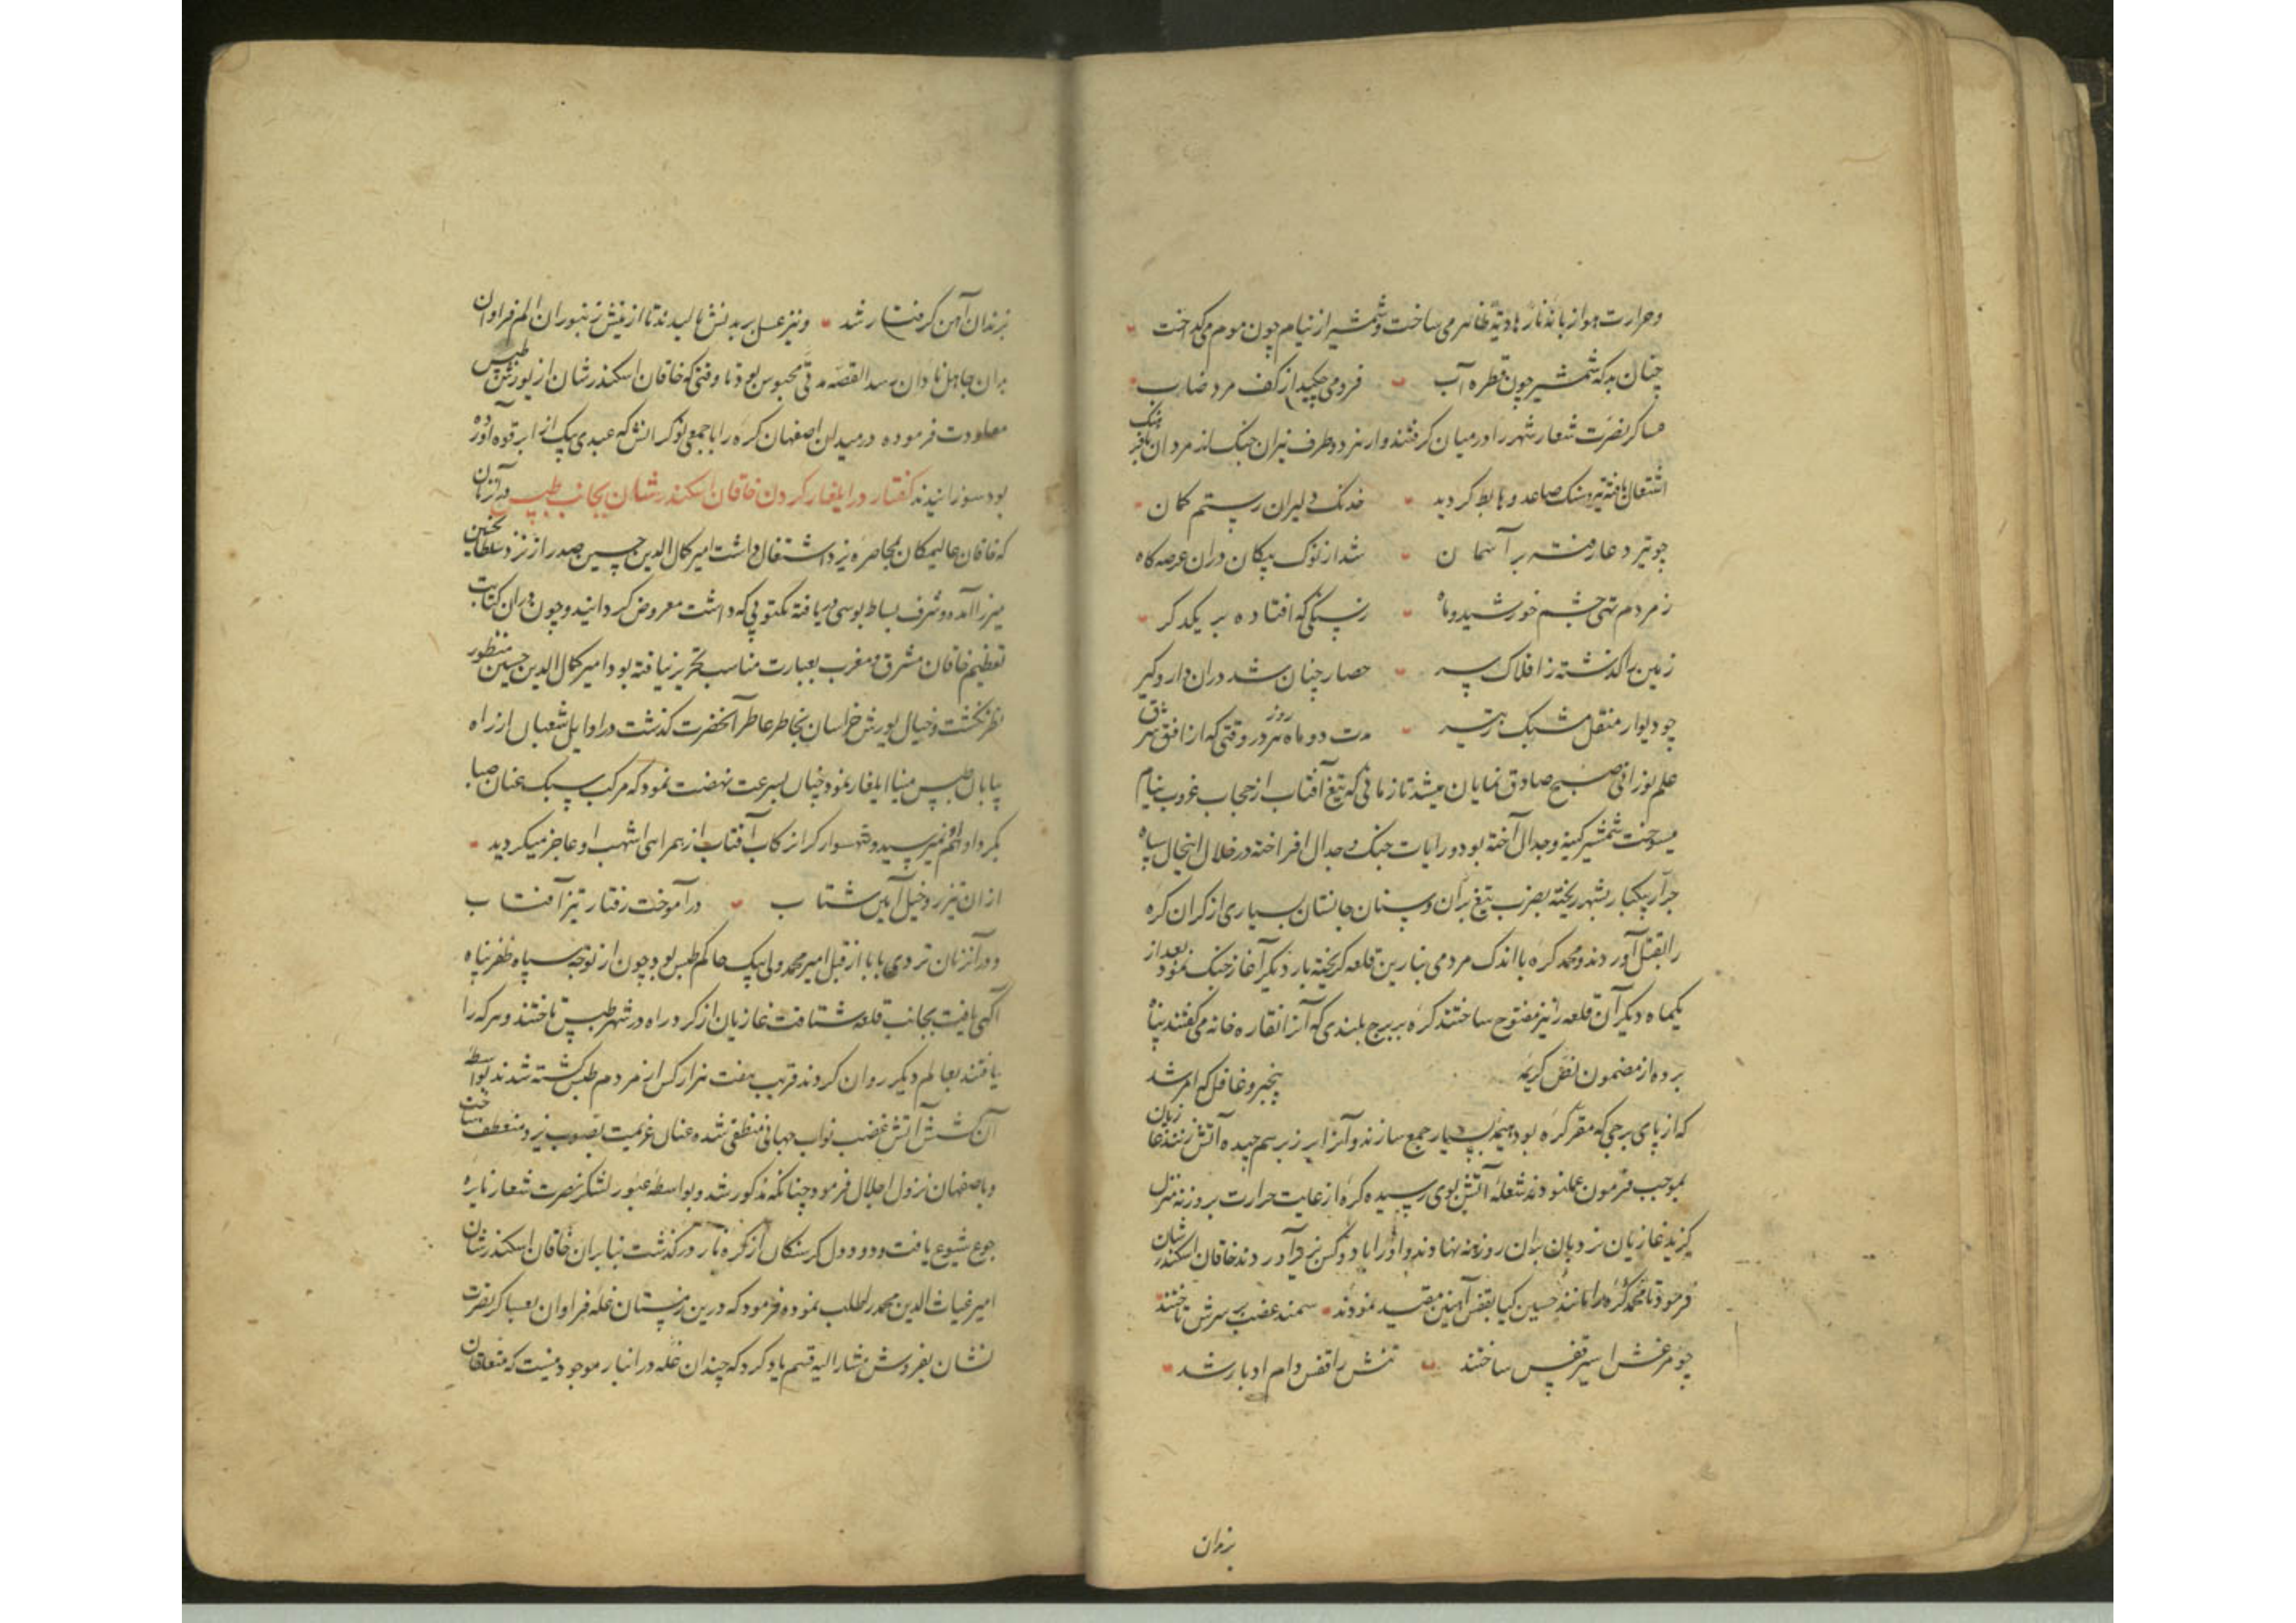 وحرارت هوا از بانه نار هاویة ظاهر می ساخت وشمشیر از نیام چون موم می کداخت
چنان بد که شمشیر چون قطره آب فرو می چکید از کف مرد ضراب
عساکر نصرت شعار شهر را در میان کرفتند واز هر دو طرف نیران جنک
اشتعال یافته تیر وسنک صاعد وهابط کردید خدنک دلیران رستم کمان
چو تیر دعا رفته بر آسمان شد از نوک پیکان دران عرصه کاه
ز مردم تهی چشم خورشید وماه ز سنکی که افتاده بر یکدکر
زمین را کذشته ز افلاک سر حصار چنان شد دران دار وکیر
چو دیوار منقل مشبک ز تیر مدت دو ماه هر روز در وقتی که از افق شرق
علم نورانی صبح صادق نمایان میشد تا زمانی که تیغ آفتاب از حجاب غروب بنیام
میرفت شمشیر کینه وجدال آخته بود ورایات جنک وجدال افراخته در خلال اینحال سپاه
جرار یکبار بشهر ریخته بضرب تیغ بران وسنان جانستان بسیاری از کران کره
را بقتل آوردند ومحمد کره با اندک مردمی بنارین قلعه کریخته بار دیکر آغاز جنک نمود بعد از
یکماه دیکر آن قلعه را نیز مفتوح ساختند کره ببرج بلندی که آنرا نقاره خانه می کفتند پناه
برده از مضمون نص کریمه بیخبر وغافل که امر شد
که از پای برجی که مقر کره بود هیمه بسیار جمع سازند وآنرا بر زبر هم چیده آتش زنند غازیان
بموجب فرموده عمل نمودند شعله آتش بوی رسیده کره از غایت حرارت بروزنه منزل
کزید غازیان نردبان بران روزنه نهادند واو را با دو کس بزیر آوردند خاقان اسکندر شان
فرمود تا محمد کره را مانند حسین کیا بقفس آهنین مقید نمودند سمند غضب بر سرش تاختند
چو مرغش اسیر قفس ساختند تنش را قفس دام ادبار شد
بزندان
بزندان آهن کرفتار شد ونیز عسل بر بدنش مالیدند تا از نیش زنبوران الم فراوان
بران جاهل نادان رسد القصه مدتی محبوس بود تا وقتی که خاقان اسکندر شان از یورش طبس
معاودت فرموده در میدان اصفهان کره را با جمعی نوکرانش که عبدی بیک از ابرقوه آورده
بود سوزانیدند کفتار در ایلغار کردن خاقان اسکندر شان بجانب طبس در آن زمان
که خاقان عالیمکان بمحاصره یزد اشتغال داشت امیر کمال الدین حسین صدر از نزد سلطان حسین
میرزا آمده وشرف بساط بوسی دریافته مکتوبی که داشت معروض کردانید وچون دران کتابت
تعظیم خاقان مشرق ومغرب بعبارت مناسب تحریر نیافته بود امیر کمال الدین حسین منظور
نظر نکشت وخیال یورش خراسان بخاطر عاطر آنحضرت کذشت در اوایل شعبان از راه
بیابان طبس مینا ایلغار نمود چنان بسرعت نهضت نمود که مرکب سبک عنان صبا
بکرد او نمیرسید وشهسوار کران رکاب آفتاب از همراهی اشهب او عاجز میکردید
ازان تیزرو خیل آیین شتاب درآموخت رفتار تیز آفتاب
ودر آنزمان تردی بابا از قبل امیر محمد ولی بیک حاکم طبس بود چون از توجه سپاه ظفر پناه
آکهی یافت بجانب قلعه شتافت غازیان از کرد راه در شهر طبس تاختند وهر که را
یافتند بعالم دیکر روان کردند قریب هفت هزار کس از مردم طبس کشته شدند بواسطه
آن کشش آتش غضب نواب جهانبانی منطفی شده عنان عزیمت بصوب یزد منعطف ساخت
وباصفهان نزول اجلال فرمود چنانکه مذکور شد وبواسطه عبور لشکر نصرت شعار نایره
جوع شیوع یافت ودود دل کرسنکان از کره نار درکذشت بنابران خاقان اسکندر شان
امیر غیاث الدین محمد را طلب نموده فرمود که درین زمستان غله فراوان بعساکر نصرت
نشان بفروش مشار الیه قسم یاد کرد که چندان غله در انبار موجود نیست که متعلقان